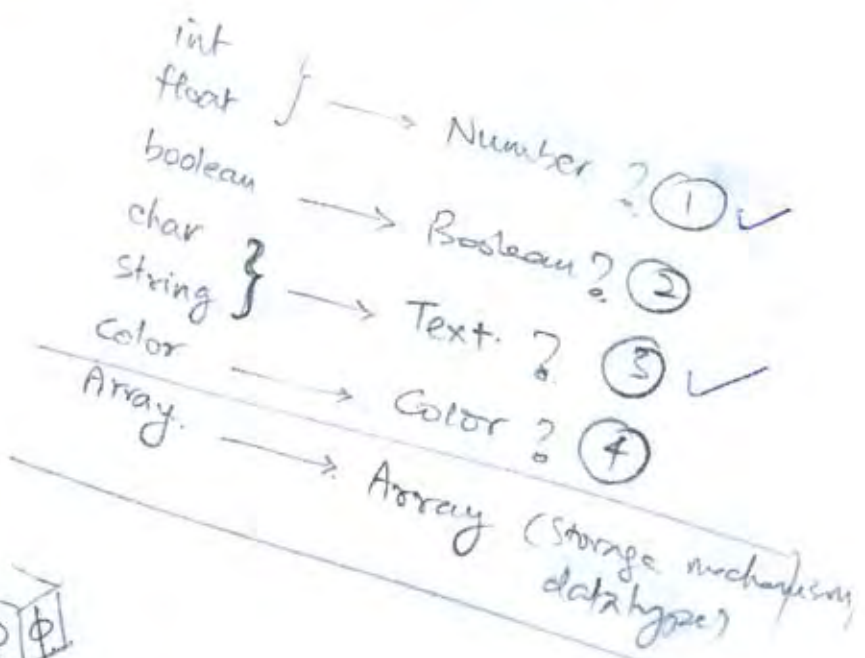 int
float } → Number ? ① ✓
boolean → Boolean ? ②
char
String } → Text. ? ③ ✓
Color → Color ? ④
Array. → Array (Storage mechanism
datatypes)